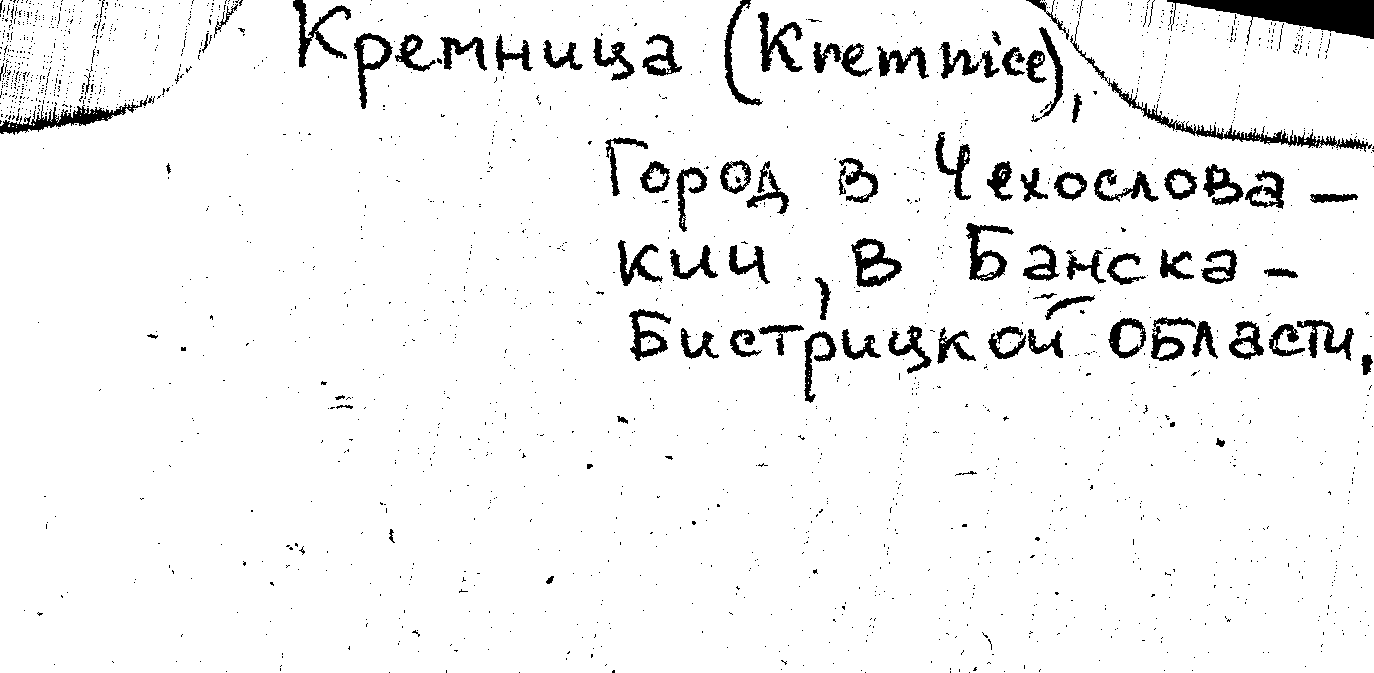 Кремница (Kremnice),
Город в Чехослова-
кии, в Банска-
Бистрицкой области,